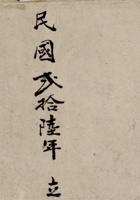 民國貳拾陸年 立